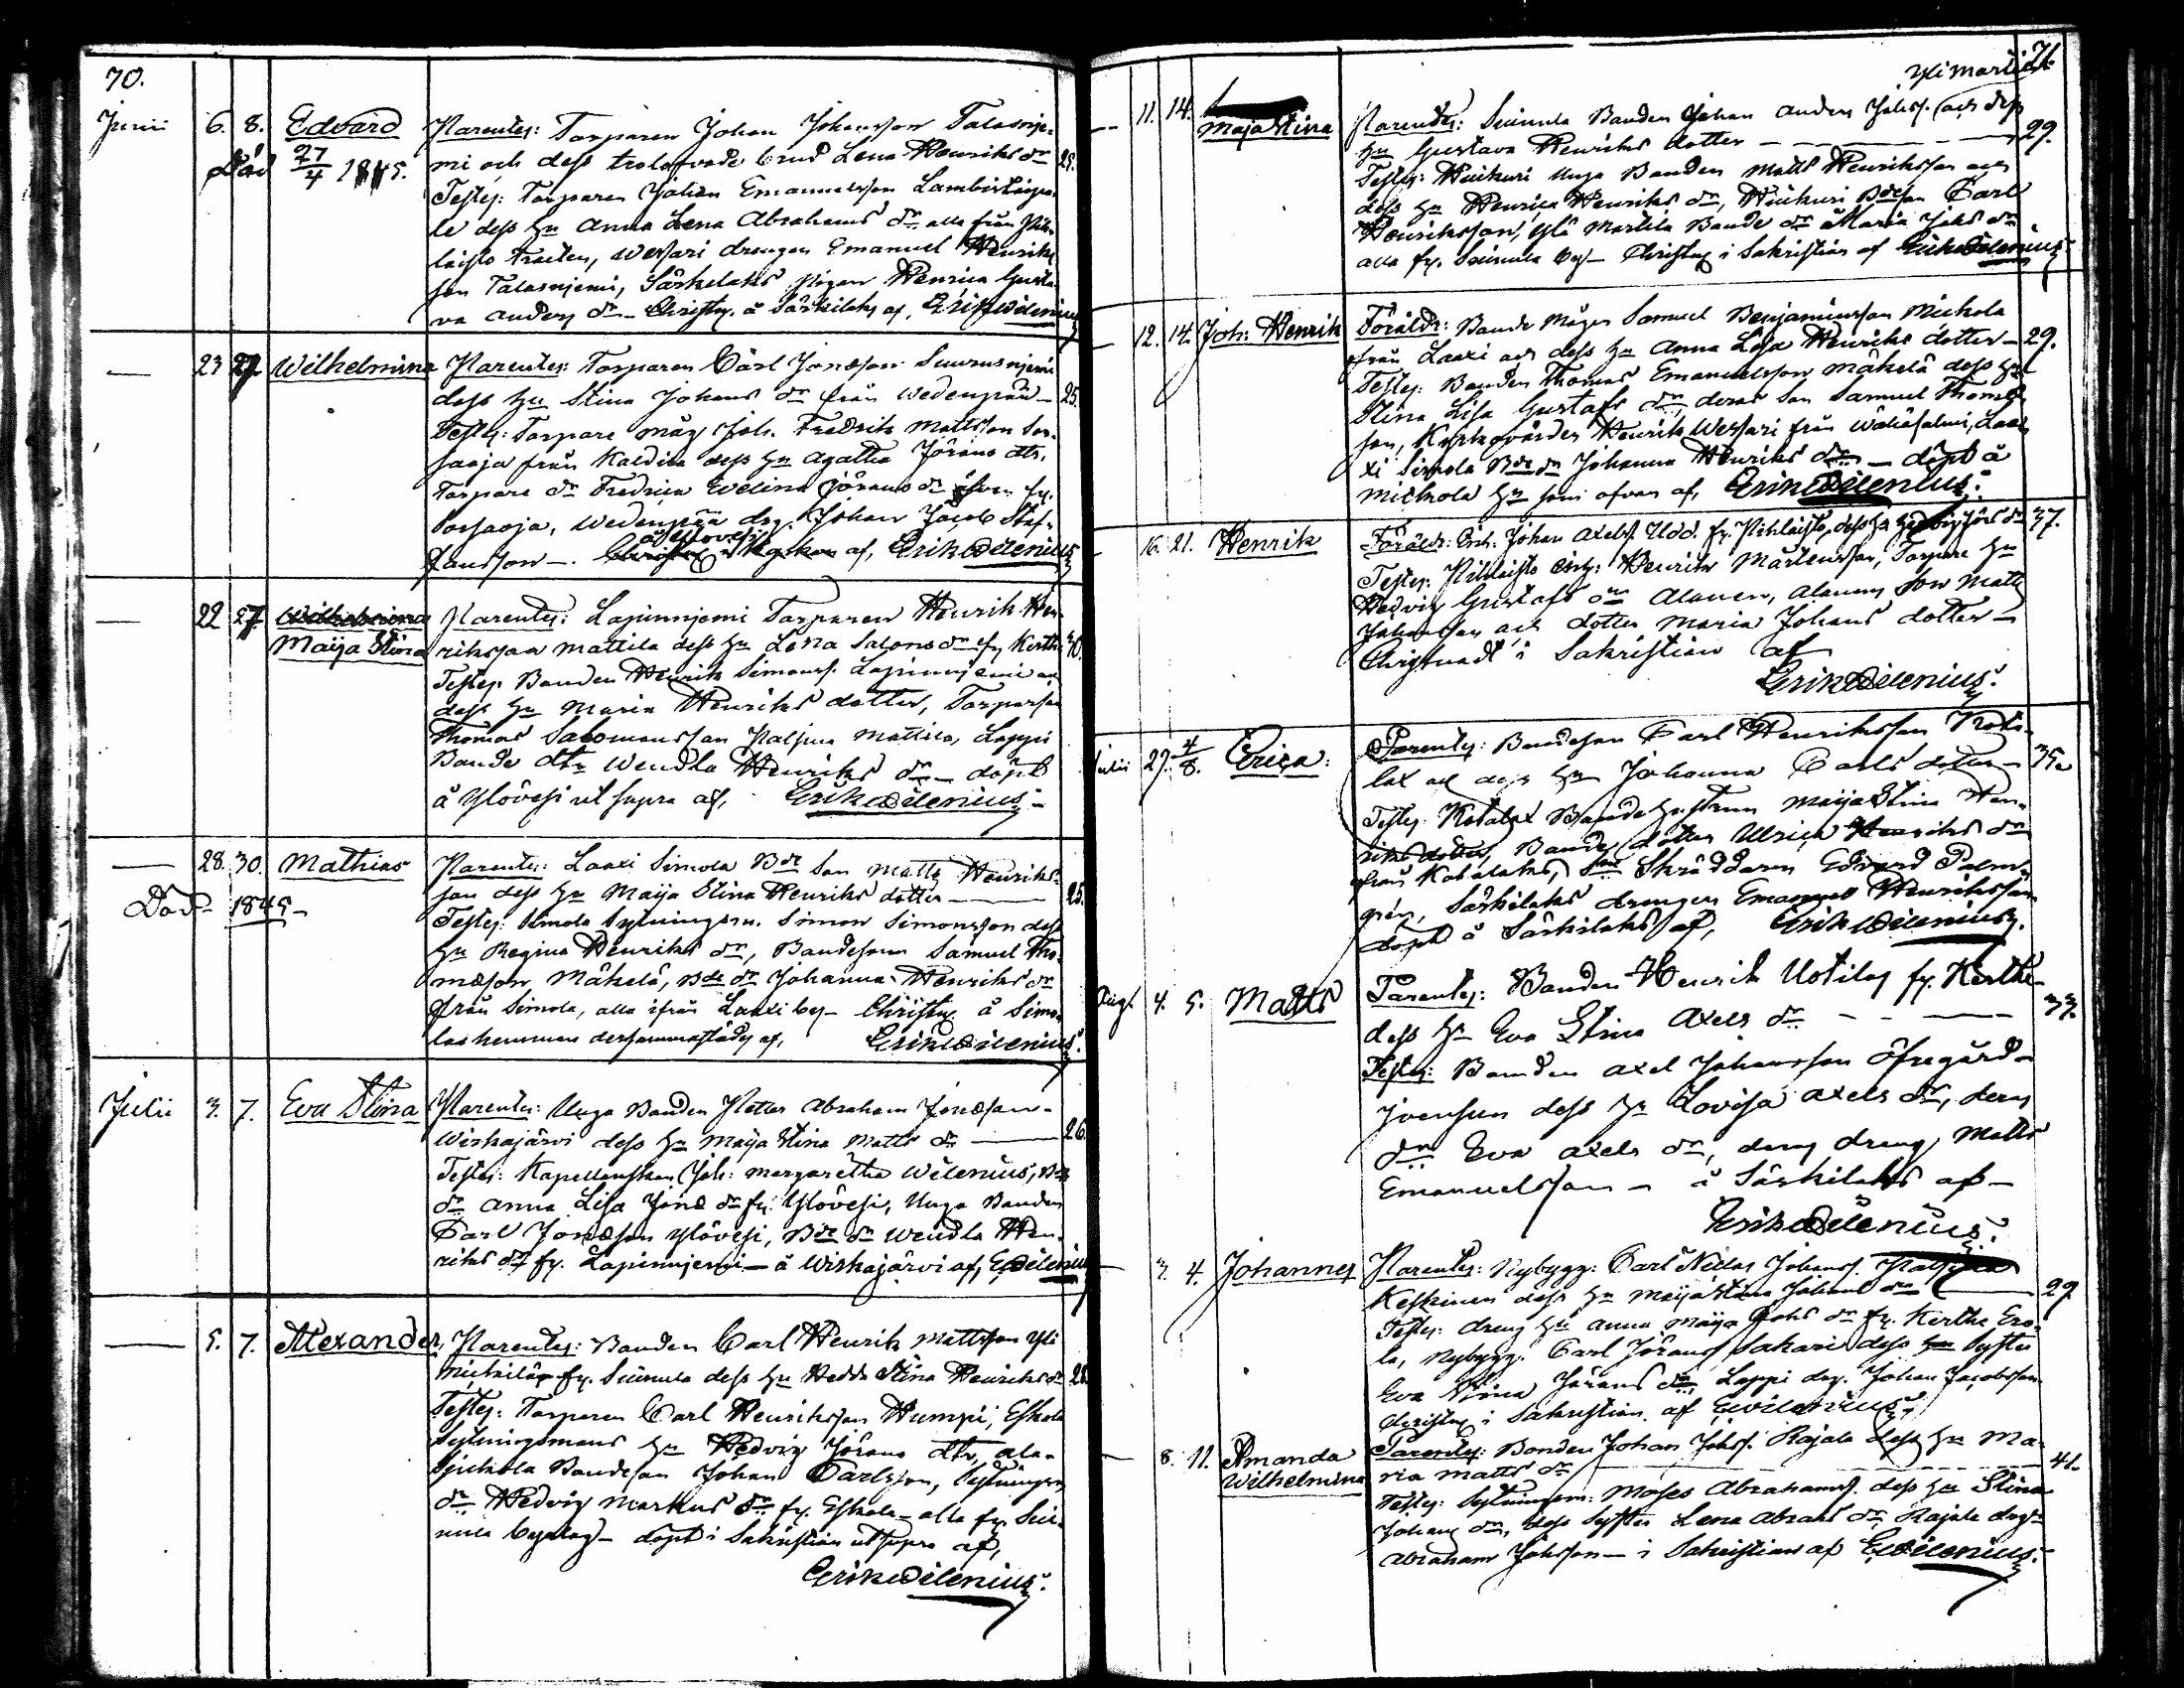 70.
Junii 6. 8. Edvard Parentes: Torparen Johan Johansson Talasnje-
Död 27/4 1845. mi och dess trolofvade brud Lena Henriks dr 29.
Testes: Torparen Johan Emanuelsson
le dess hu Anna Lena Abrahams dr alla från
laisto trakten, Wessari drengen Emanuel Henriks
son Talasnjemi, Särkelaks pigan Henrica Gusta-
va Anders dr - Christn. å Särkilaks af, Erik Wilenius
— 23 27. Wilhelmina Parentes: Torparen Carl Jonasson
dess hu Stina Johans dr från Wedenpää — 25.
Testes: Torpare måg Joh. Fredrik Mattsson Sor-
saoja från dess hu Agatha Jörans dtr,
Torpare dr Fredrica Welina Jörans dr även fr.
Sorsaoja, Wedenpää drg. Johan Jacob Staf-
å Ylövesi
fansson —. af, Erik Wilenius
— 22 27 Wilhelmina Parentes: Lapinnjemi Torparen Henrik Hen-
Maija Stina riksson Mattila dess hu Lena Salomons dr fr. Kerthe 40.
Testes. Bonden Henrik Simonss. Lapinnjemi och
dess hu Maria Henriks dotter, Torparson
Thomas Salomonsson Mattila, Lappi
Bonde dtr Wendla Henriks dr — döpt
å Ylövesi ut supra af, Erik Wilenius
— 28. 30. Mathias Parentes: Laaxi Simola Bde son Matts Henriks-
Död 1845 - son dess hu Maija Stina Henriks dotter — 25.
Testes: Simola Sytningsm. Simon Simonsson dess
hu Regina Henriks dr, Bondesonen Samuel Tho-
masson Mäkelä, Bde dr Johanna Henriks dr
från Simola, alla ifrån Laaxi by — Christn. å Simo-
las hemman dersammastädes af, Erik Wilenius.
Julii 3. 7. Eva Stina Parentes: Unga Bonden Petter Abraham Jonasson
Wirkajärvi dess hu Maija Stina Matts dr — 26.
Testes: Kapellanskan Joh: Margaretha Wilenius, Bde
dr Anna Lisa Jonas dr fr. Ylövesi, Unga Bonden
Carl Jonasson Ylövesi, Bde dr Wendla Hen-
riks dr fr. Lapinnjemi — å Wirkajärvi af, E Wilenius
— 5. 7. Alexander, Parentes: Bonden Carl Henrik Mattsson Yli
fr. Suinula dess hu Hedda Stina Henriks dr 28.
Testes: Torparen Carl Henriksson Humpi, Eskola
Sytningsmans hu Hedvig Jörans dtr, Ala-
Bondeson Johan Carlsson, Sytnings
dr Hedvig Markus dr fr. Eskola — alla fr. Sui-
nula byalag — döpt i Sakristian ut supra af,
Erik Wilenius.
71.
— 11. 14. Maja Stina Parentes: Suinula Bonden Johan Anders Johss. och dess
hu Gustava Henriks dotter — 29.
Testes: Unga Bonden Matts Henriksson och
dess hu Henrica Henriks dr, Bdeson Carl
Henriksson, Martila Bonde dr Maria Johs dr
alla fr. Suinula by — Christn. i Sakristian af Erik Wilenius
— 12. 14. Joh. Henrik Föräldr: Bonde Mågen Samuel Benjaminsson Mickola
från Laaxi och dess hu Anna Lisa Henriks dotter — 29.
Testes: Bonden Thomas Emanuelsson Mäkelä dess hu
Stina Lisa Gustafs dr, deras son Samuel Thomas-
son, Kyrkovärden Henrik Wessari från Wähäsalmi, Laa-
xi Simola Bde dr Johanna Henriks dr — döpt å
Mickola hem som ofvan af, Erik Wilenius.
— 16. 21. Henrik Föräldr: Johan Axels. Udd. fr. Pihlaisto, dess hu Hedvig Jörs dr 37.
Testes: Pihlaisto Henrik Mårtensson, Torpare hu
Hedvig Gustafs dr Alanen, Alanens son Matts
Johansson och dotter Maria Johans dotter —
Christnadt i Sakristian af
Erik Wilenius.
Julii 27. 4/8. Erica: Parentes: Bondeson Carl Henriksson Kota-
lax och dess hu Johanna Carls dotter — 35.
Testes. Kotalax Bonde hustrun Maija Stina Hen-
riks dotter, Bonde dotter Ulrica Henriks dr
från Kotalaks, Skräddaren Edvard Palm-
grén, Särkilaks drengen Emanuel Henriksson
döpt å Särkilaks af, Erik Wilenius.
Aug. 4. 5. Matts Parentes: Bonden Henrik Uotilas fr. Kerthe
dess hu Eva Stina Axels dr — 33.
Testes: Bonden Axel Johansson Öfregård
dess hu Lovisa Axels dr, deras
dr Eva Axels dr, deras dreng Matts
Emanuelsson — å Särkilaks af —
Erik Wilenius.
— 3. 4. Johannes Parentes: Nybygg: Carl Niclas Johanss.
Keskinen dess hu Maija Stina Johans dr — 29
Testes: dreng hu Anna Maija Johs dr fr. Kerthe Ero-
la, Nybygg: Carl Jöranss. Sakari dess syster
Eva Stina Jörans dr, Lappi drg. Johan Jacobsson
Christn. i Sakristian af E Wilenius
— 8. 11. Amanda Parentes: Bonden Johan Johss. Rajala dess hu Ma-
Wilhelmina ria Matts dr — 41.
Testes: Sytningsm: Moses Abrahams. dess hu Stina
Johans dr, dess syster Lena Abrahs dr, Rajala drg
Abraham Johsson — i Sakristian af E Wilenius.